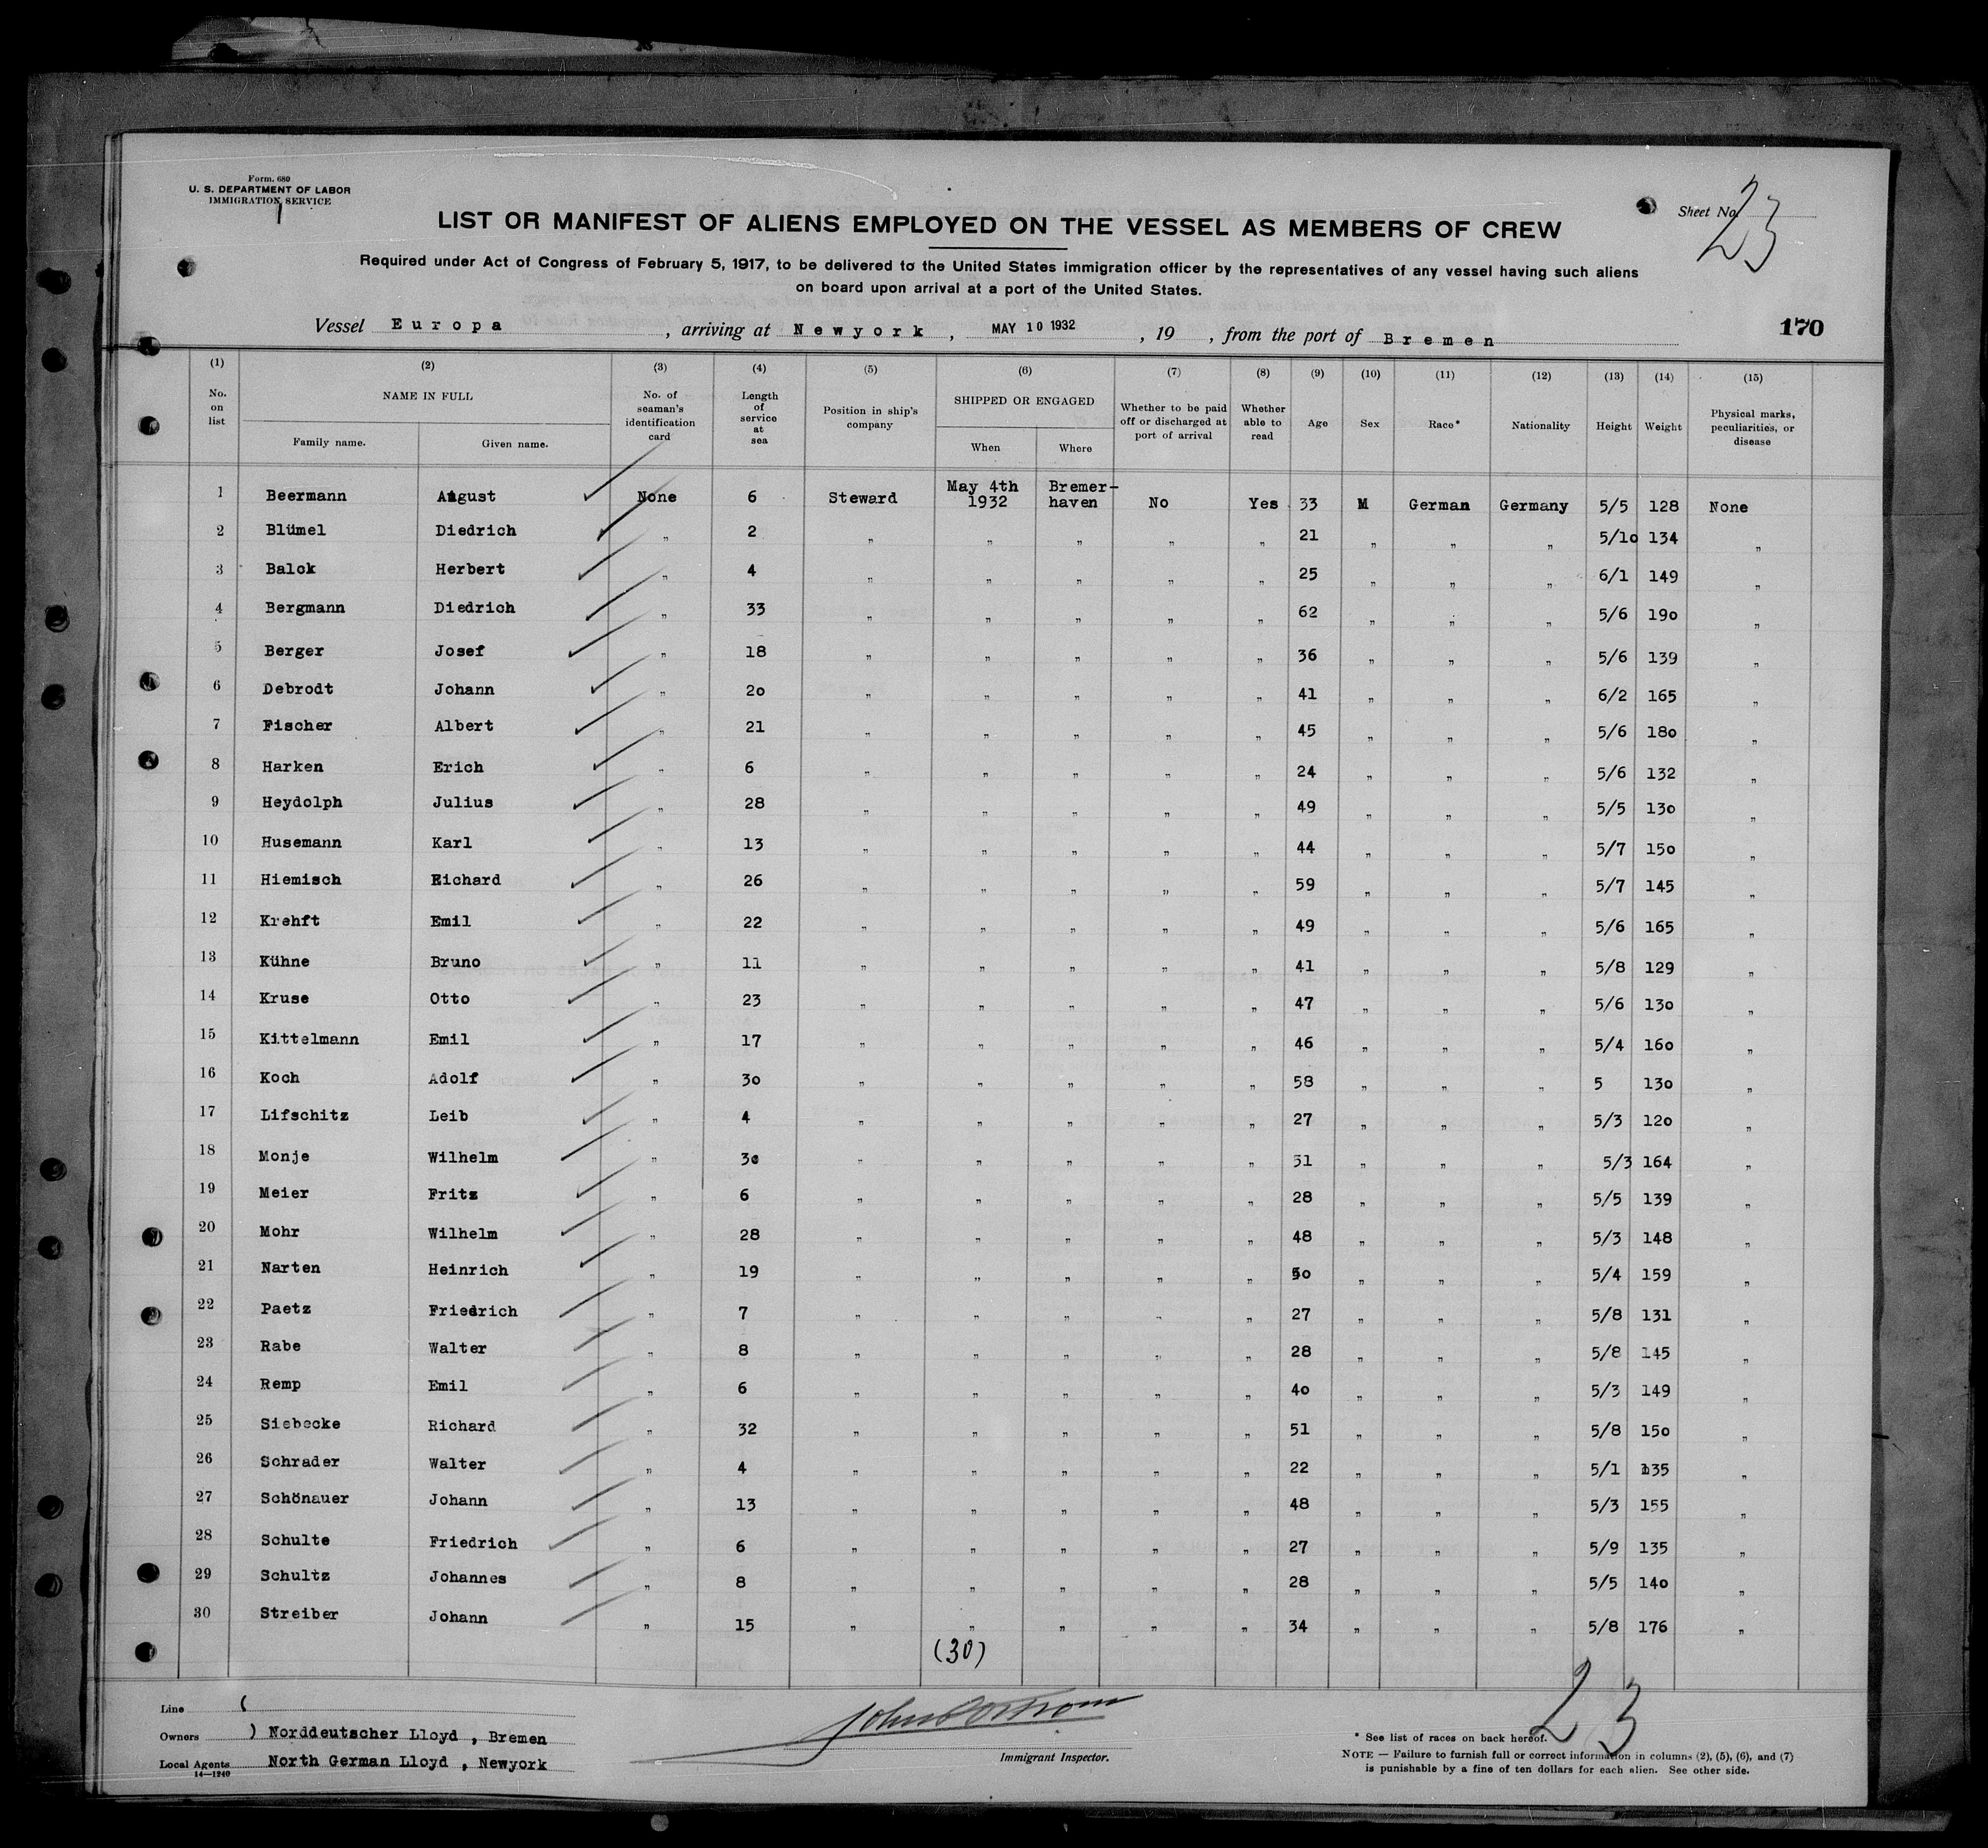 Form. 680
U. S. DEPARTMENT OF LABOR
IMMIGRATION SERVICE
Sheet No. 23
LIST OR MANIFEST OF ALIENS EMPLOYED ON THE VESSEL AS MEMBERS OF CREW
Required under Act of Congress of February 5, 1917, to be delivered to the United States immigration officer by the representatives of any vessel having such aliens
on board upon arrival at a port of the United States.
Vessel Europa , arriving at Newyork , MAY 10 1932 , 19 , from the port of Bremen
170
(1) (2) (3) (4) (5) (6) (7) (8) (9) (10) (11) (12) (13) (14) (15)
No. on list NAME IN FULL Family name. Given name. No. of seaman's identification card Length of service at sea Position in ship's company SHIPPED OR ENGAGED When Where Whether to be paid off or discharged at port of arrival Whether able to read Age Sex Race* Nationality Height Weight Physical marks, peculiarities, or disease
1 Beermann August None 6 Steward May 4th 1932 Bremerhaven No Yes 33 M German Germany 5/5 128 None
2 Blümel Diedrich „ 2 „ „ „ „ „ 21 „ „ „ 5/10 134 „
3 Balck Herbert „ 4 „ „ „ „ „ 25 „ „ „ 6/1 149 „
4 Bergmann Diedrich „ 33 „ „ „ „ „ 62 „ „ „ 5/6 190 „
5 Berger Josef „ 18 „ „ „ „ „ 36 „ „ „ 5/6 139 „
6 Debrodt Johann „ 20 „ „ „ „ „ 41 „ „ „ 6/2 165 „
7 Fischer Albert „ 21 „ „ „ „ „ 45 „ „ „ 5/6 180 „
8 Harken Erich „ 6 „ „ „ „ „ 24 „ „ „ 5/6 132 „
9 Heydolph Julius „ 28 „ „ „ „ „ 49 „ „ „ 5/5 130 „
10 Husemann Karl „ 13 „ „ „ „ „ 44 „ „ „ 5/7 150 „
11 Hiemisch Richard „ 26 „ „ „ „ „ 59 „ „ „ 5/7 145 „
12 Krehft Emil „ 22 „ „ „ „ „ 49 „ „ „ 5/6 165 „
13 Kühne Bruno „ 11 „ „ „ „ „ 41 „ „ „ 5/8 129 „
14 Kruse Otto „ 23 „ „ „ „ „ 47 „ „ „ 5/6 130 „
15 Kittelmann Emil „ 17 „ „ „ „ „ 46 „ „ „ 5/4 160 „
16 Koch Adolf „ 30 „ „ „ „ „ 58 „ „ „ 5 130 „
17 Lifschitz Leib „ 4 „ „ „ „ „ 27 „ „ „ 5/3 120 „
18 Monje Wilhelm „ 30 „ „ „ „ „ 51 „ „ „ 5/3 164 „
19 Meier Fritz „ 6 „ „ „ „ „ 28 „ „ „ 5/5 139 „
20 Mohr Wilhelm „ 28 „ „ „ „ „ 48 „ „ „ 5/3 148 „
21 Narten Heinrich „ 19 „ „ „ „ „ 50 „ „ „ 5/4 159 „
22 Paetz Friedrich „ 7 „ „ „ „ „ 27 „ „ „ 5/8 131 „
23 Rabe Walter „ 8 „ „ „ „ „ 28 „ „ „ 5/8 145 „
24 Remp Emil „ 6 „ „ „ „ „ 40 „ „ „ 5/3 149 „
25 Siebecke Richard „ 32 „ „ „ „ „ 51 „ „ „ 5/8 150 „
26 Schrader Walter „ 4 „ „ „ „ „ 22 „ „ „ 5/1 135 „
27 Schönauer Johann „ 13 „ „ „ „ „ 48 „ „ „ 5/3 155 „
28 Schulte Friedrich „ 6 „ „ „ „ „ 27 „ „ „ 5/9 135 „
29 Schultz Johannes „ 8 „ „ „ „ „ 28 „ „ „ 5/5 140 „
30 Streiber Johann „ 15 „ „ „ „ „ 34 „ „ „ 5/8 176 „
(30)
23
Line (
Owners ) Norddeutscher Lloyd , Bremen
Local Agents North German Lloyd , Newyork
14—1240
Immigrant Inspector.
* See list of races on back hereof.
NOTE — Failure to furnish full or correct information in columns (2), (5), (6), and (7)
is punishable by a fine of ten dollars for each alien. See other side.